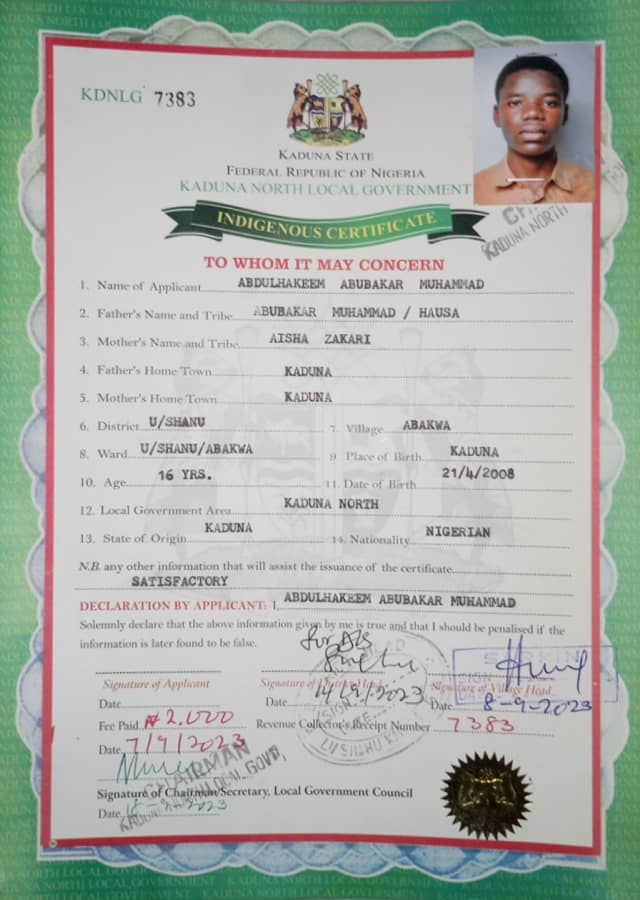 KDNLG 7383
KADUNA STATE
FEDERAL REPUBLIC OF NIGERIA
KADUNA NORTH LOCAL GOVERNMENT
INDIGENOUS CERTIFICATE
KADUNA NORTH
TO WHOM IT MAY CONCERN
1. Name of Applicant ABDULHAKEEM ABUBAKAR MUHAMMAD
2. Father's Name and Tribe ABUBAKAR MUHAMMAD / HAUSA
3. Mother's Name and Tribe AISHA ZAKARI
4. Father's Home Town KADUNA
5. Mother's Home Town KADUNA
6. District U/SHANU 7. Village ABAKWA
8. Ward U/SHANU/ABAKWA 9 Place of Birth KADUNA
10. Age 16 YRS. 11. Date of Birth 21/4/2008
12. Local Government Area KADUNA NORTH
13. State of Origin KADUNA 14. Nationality NIGERIAN
N.B. any other information that will assist the issuance of the certificate
SATISFACTORY
DECLARATION BY APPLICANT: I, ABDULHAKEEM ABUBAKAR MUHAMMAD
Solemnly declare that the above information given by me is true and that I should be penalised if the
information is later found to be false.
Signature of Applicant Signature of District Head Signature of Village Head
Date Date 14/9/2023 Date 8-9-2023
Fee Paid ₦2,000 Revenue Collector's Receipt Number 7383
Date 7/9/2023
CHAIRMAN
Signature of Chairman/Secretary, Local Government Council
Date